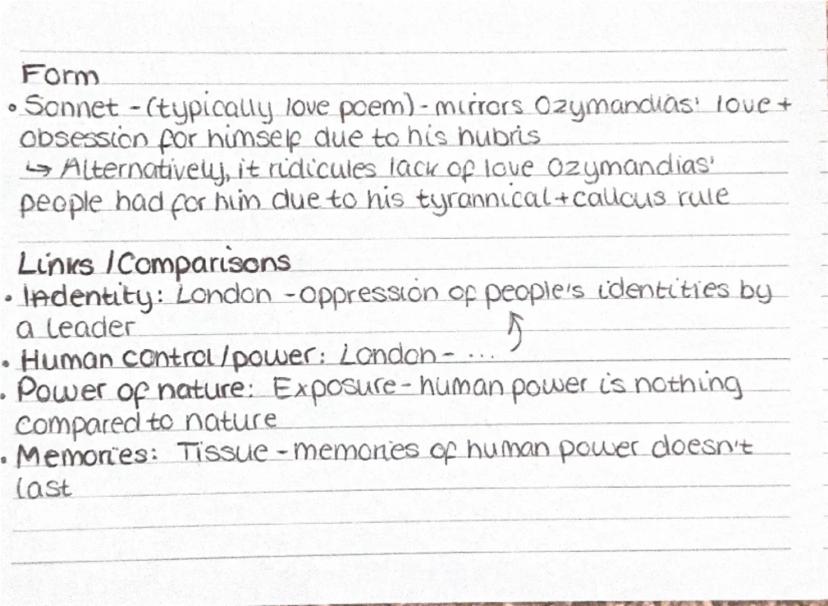 Form
• Sonnet - (typically love poem) - mirrors Ozymandias' love +
obsession for himself due to his hubris
↳ Alternatively, it ridicules lack of love Ozymandias'
people had for him due to his tyrannical + callous rule
Links / Comparisons
• Indentity: London - oppression of people's identities by
a leader
• Human control/power: London - ...
• Power of nature: Exposure - human power is nothing
compared to nature
• Memories: Tissue - memories of human power doesn't
last